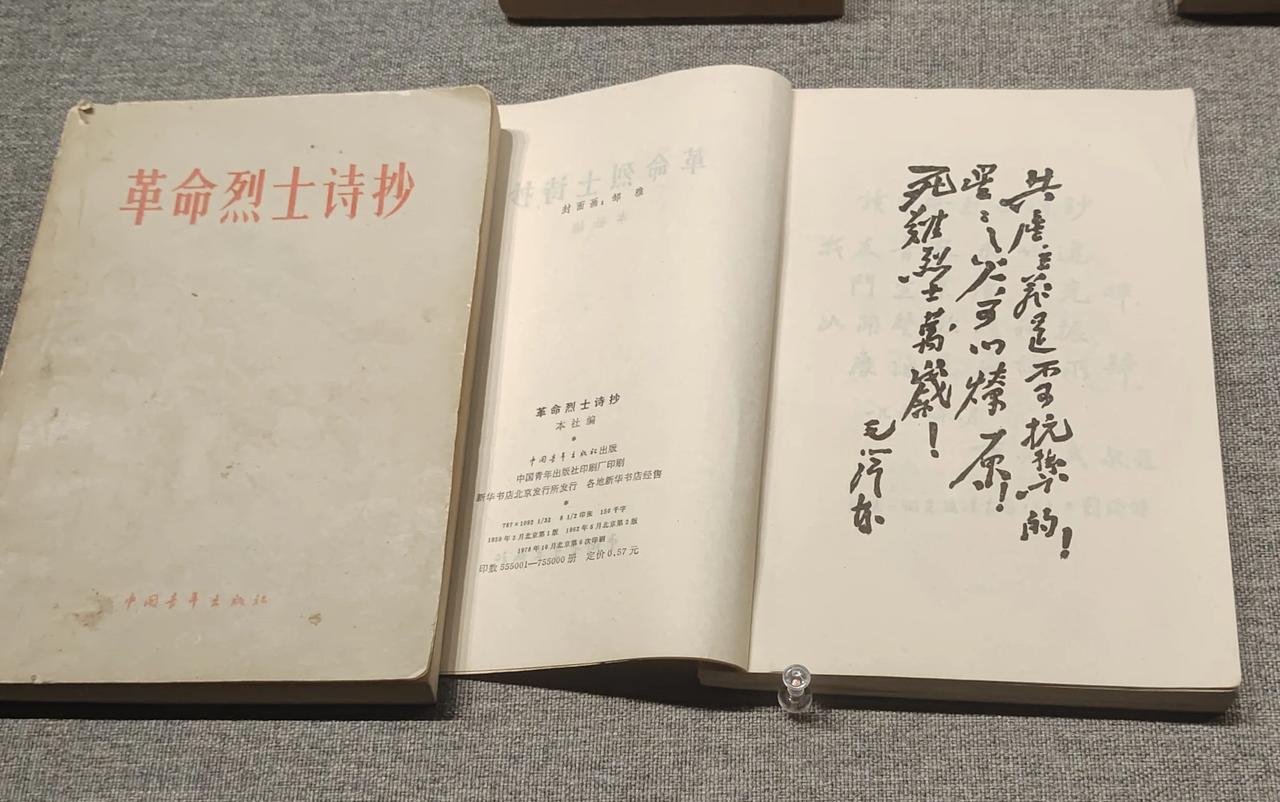 革命烈士诗抄
中国青年出版社
封面画：邹雅
革命烈士诗抄
本社编
*
中国青年出版社出版
中国青年出版社印刷厂印刷
新华书店北京发行所发行 各地新华书店经售
*
787×1092 1/32 8 1/2印张 150千字
1959年3月北京第1版 1962年6月北京第2版
1978年10月北京第6次印刷
印数555001—755000册 定价0.57元
共产主义是不可抗御的！
星星之火，可以燎原！
死难烈士萬歲！
毛泽东